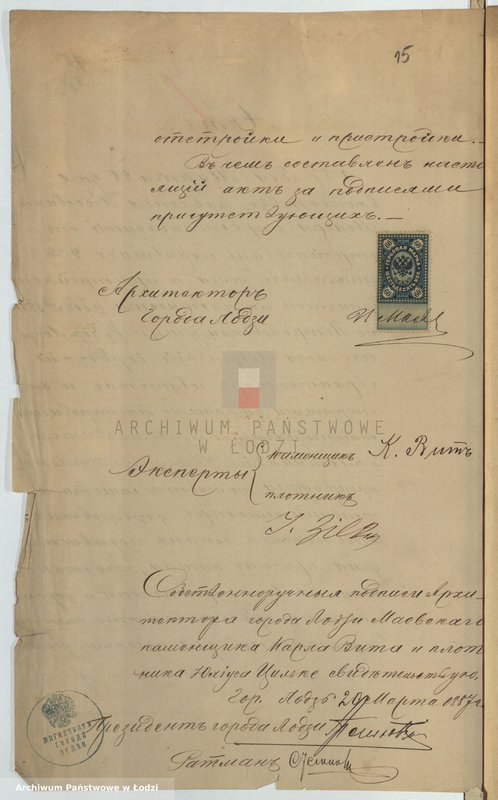 15
отстройки и пристройки.—
Въ чемъ составленъ насто
ящій актъ за подписями
присутствующихъ.—
Архитекторъ
города Лодзи
И Маев
ARCHIWUM PAŃSTWOWE
W ŁODZI
Эксперты
каменщикъ К. Витъ
плотникъ
J. Zilke
Собственноручныя подписи Архи-
тектора города Лодзи Маевскаго
каменщика Карла Вита и плот
ника Юліуса Цильке свидѣтельствую.
Гор. Лодзь 29 Марта 1887 г.
МАГИСТРАТЪ
ГОРОДА
ЛОДЗИ
Президентъ города Лодзи
Ратманъ
Archiwum Państwowe w Łodzi